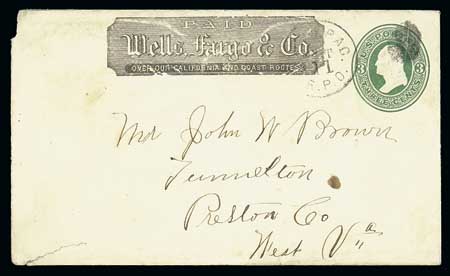 PAID
Wells, Fargo & Co.
OVER OUR CALIFORNIA AND COAST ROUTES.
PAC.
11
R.P.O.
U.S. POSTAGE
3 3
THREE CENTS
Mr John W Brown
Tunnelton
Preston Co
West Va